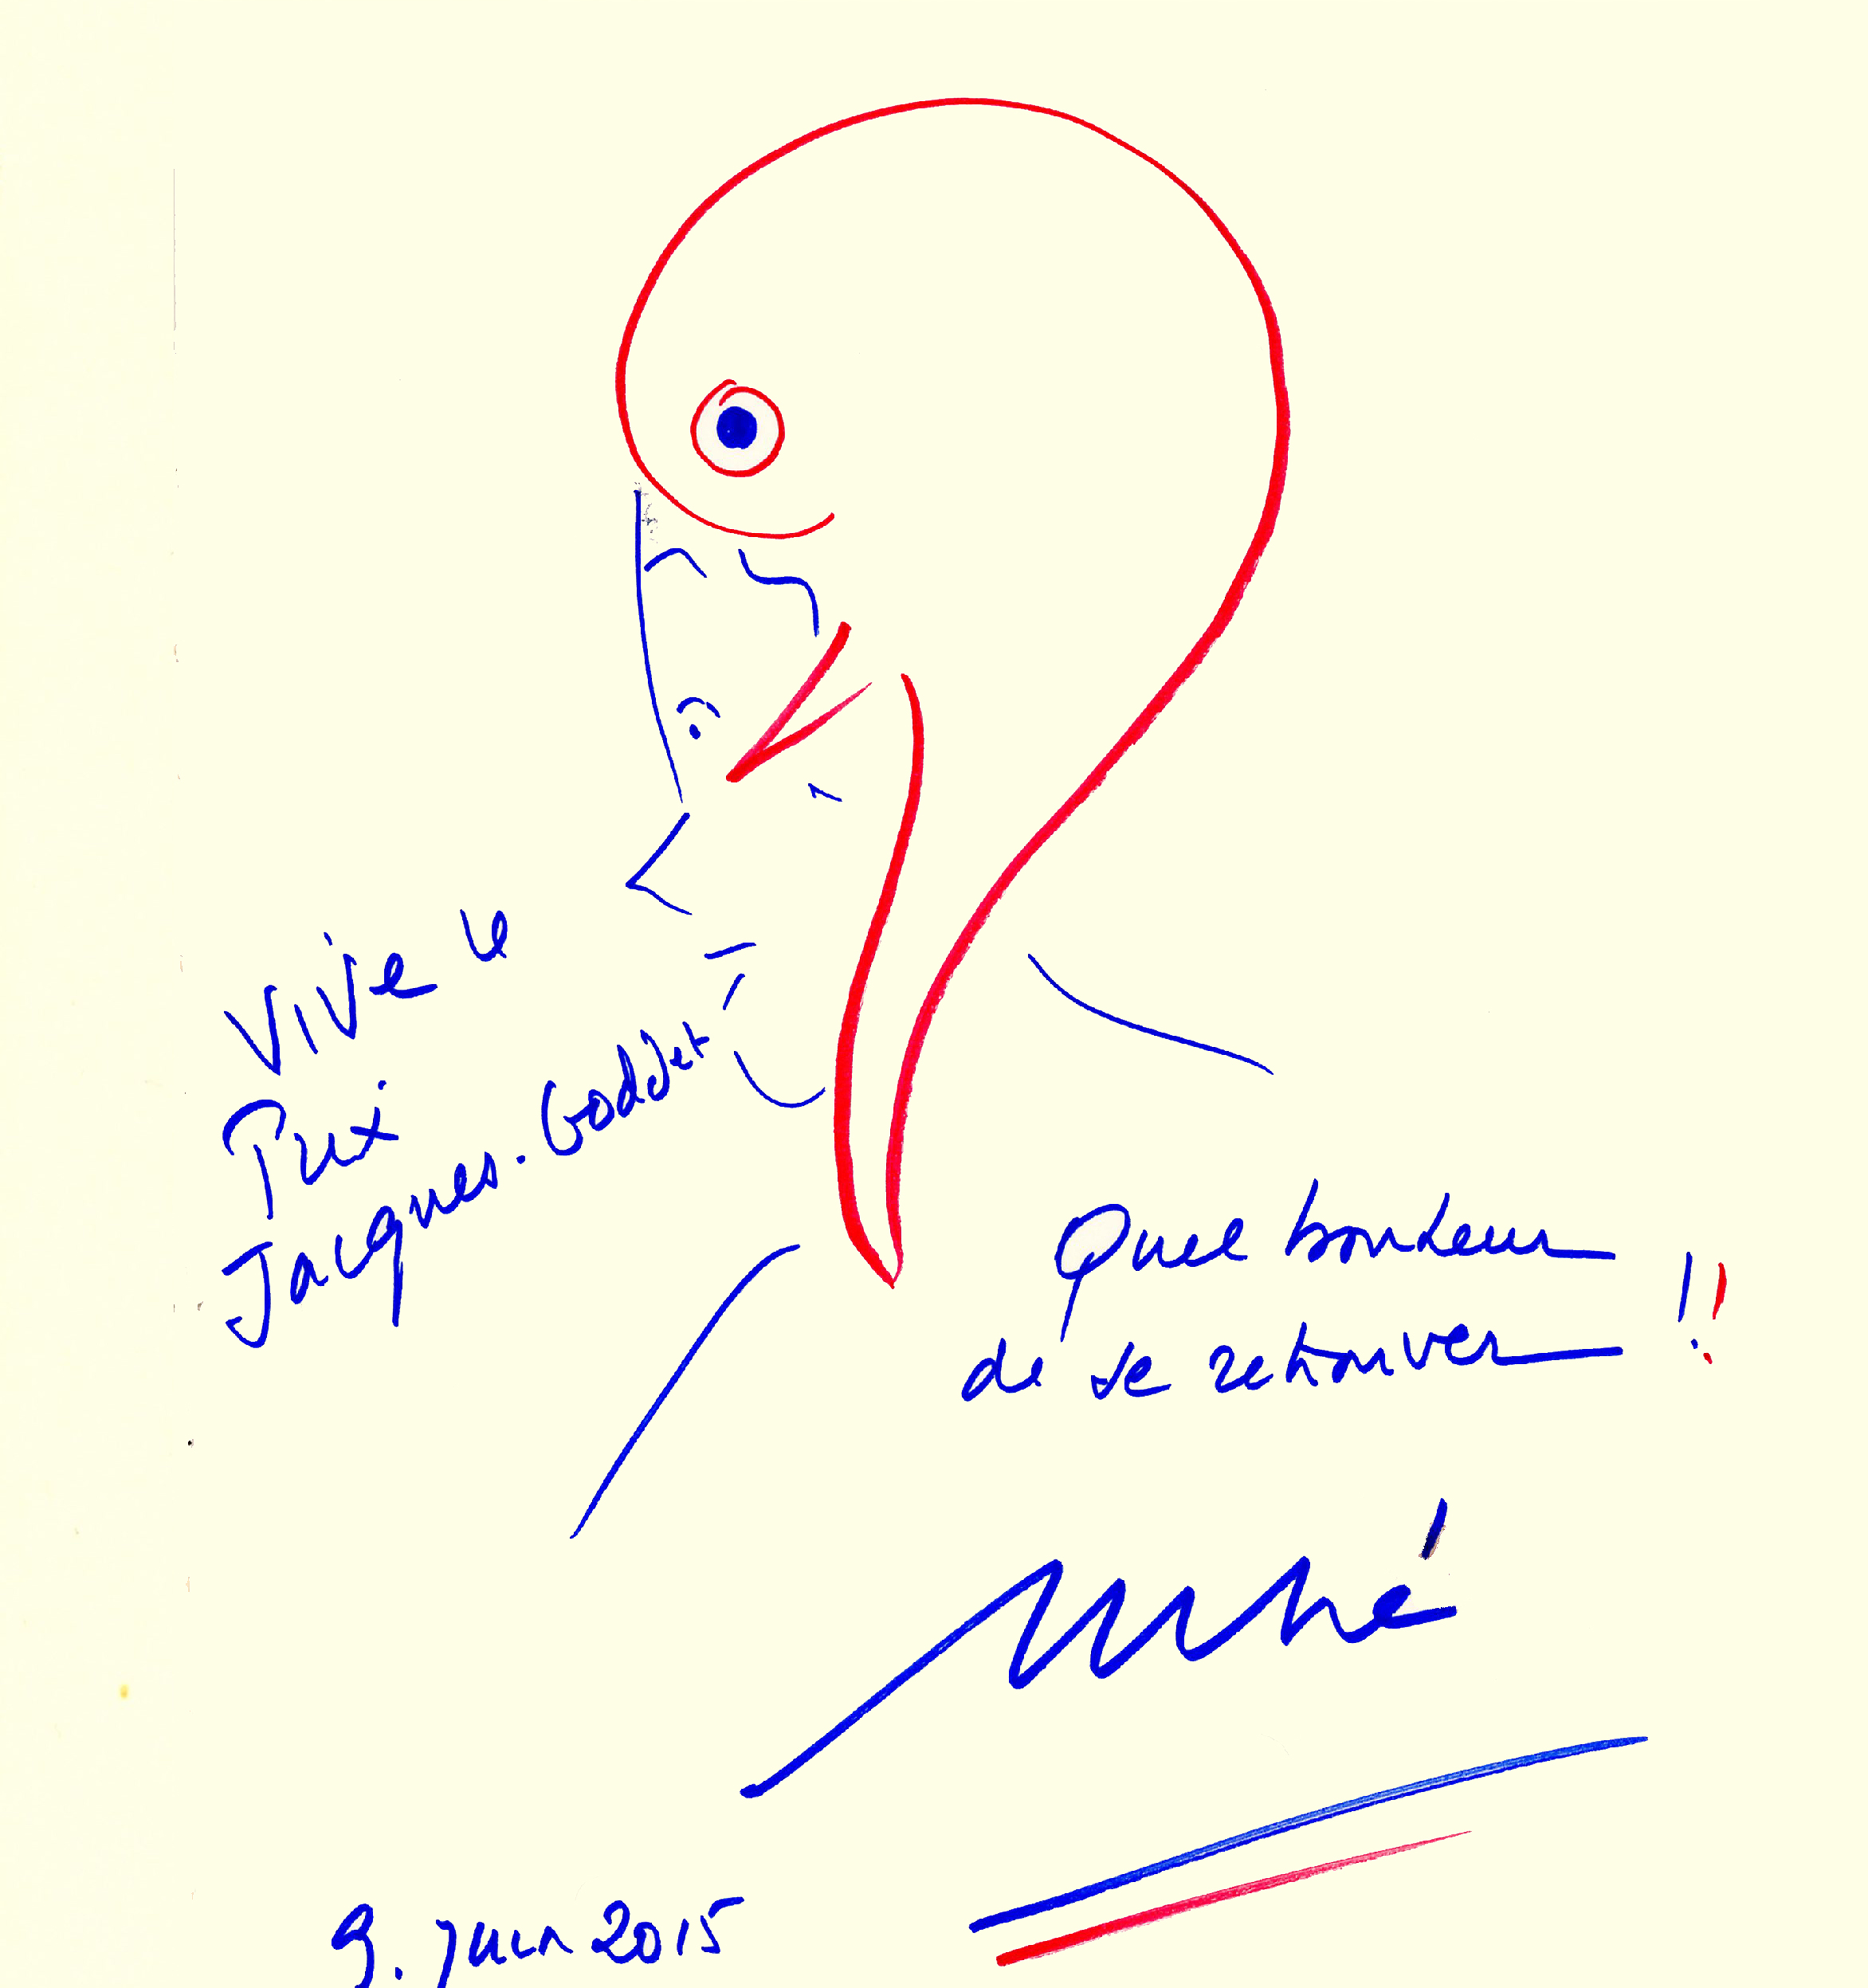 Vive le
Prix
Jacques. Goddet
Quel bonheur
de se retrouver !!
9. juin 2015